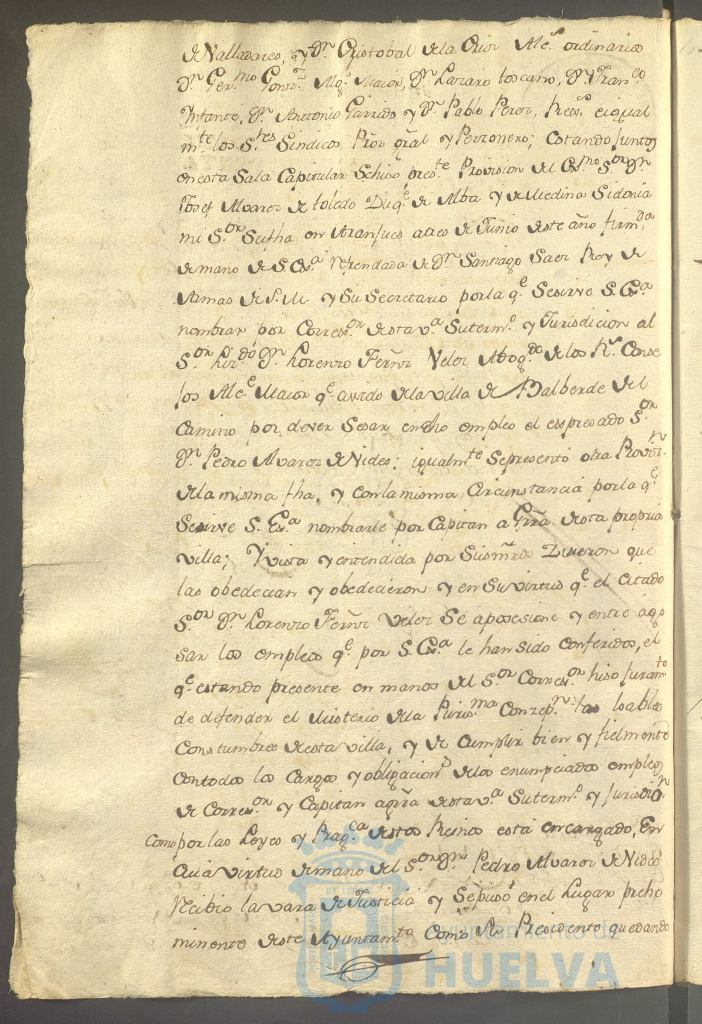 de Valladares, y Dn Cristobal de la Orir Alc.s ordinarios
Dn Ger.mo Gonz.z Alg.l Maior, Dn Lazaro toscano, Dn Fran.co
Infante, Dn Antonio Garrido y Dn Pablo Perez, Rex.s e igual
m.te los S.res Sindicos Pror gral y Perzonero; Estando Juntos
en esta Sala Capitular Se hiso pres.te Provision del Ex.mo S.or Dn
Josef Alvarez de toledo Duq.e de Alba y de Medina Sidonia
mi S.or Su fha en Aranjues a tres de Junio deste año firm.da
de mano de S. Ex.a refrendada de Dn Santiago Saez Rey de
Armas de S. M. y Su Secretario por la q.e Se sirve S. Ex.a
nombrar por Corres.or de esta V.a Su term.o y Jurisdicion al
S.or Liz.do Dn Lorenzo Ferñz Velez Abog.do de los R.s Conse
jos Alc.e Maior q.e a sido de la villa de Balberde del
Camino por dever Sesar en dho empleo el espresado S.or
Dn Pedro Alvarez de Nides; igualm.te Se presentó otra Provi.n
de la misma fha, y con la misma Circunstancia por la q.e
Se sirve S. Ex.a nombrarle por Capitan a Grra desta propria
villa; Y vista y entendida por Sus mrds Dixeron que
las obedecian y obedecieron y en Su virtud q.e el Citado
S.or Dn Lorenzo Ferñz Velez Se aposesione y entre a go
sar los empleos q.e por S. Ex.a le han sido Conferidos, el
q.e estando presente en manos del S.or Corres.or hiso Juram.to
de defender el Misterio de la Puris.ma Conzep.n las loables
Constumbres de esta villa, y de Cumplir bien y fielmente
Con todos los Cargos y obligacion.s de los enunpciados empleos
de Corres.or y Capitan a grra desta v.a Su term.o y Jurisdic.n
Como por las Leyes y Prag.ca destos Reinos está encargado, En
Cuia virtud de mano del S.or Dn Pedro Alvarez de Nides
recibio la vara de Justicia y Se puso en el Lugar prehe
minente deste Ayuntam.to Como Presidente quedando
Ayuntamiento de
HUELVA